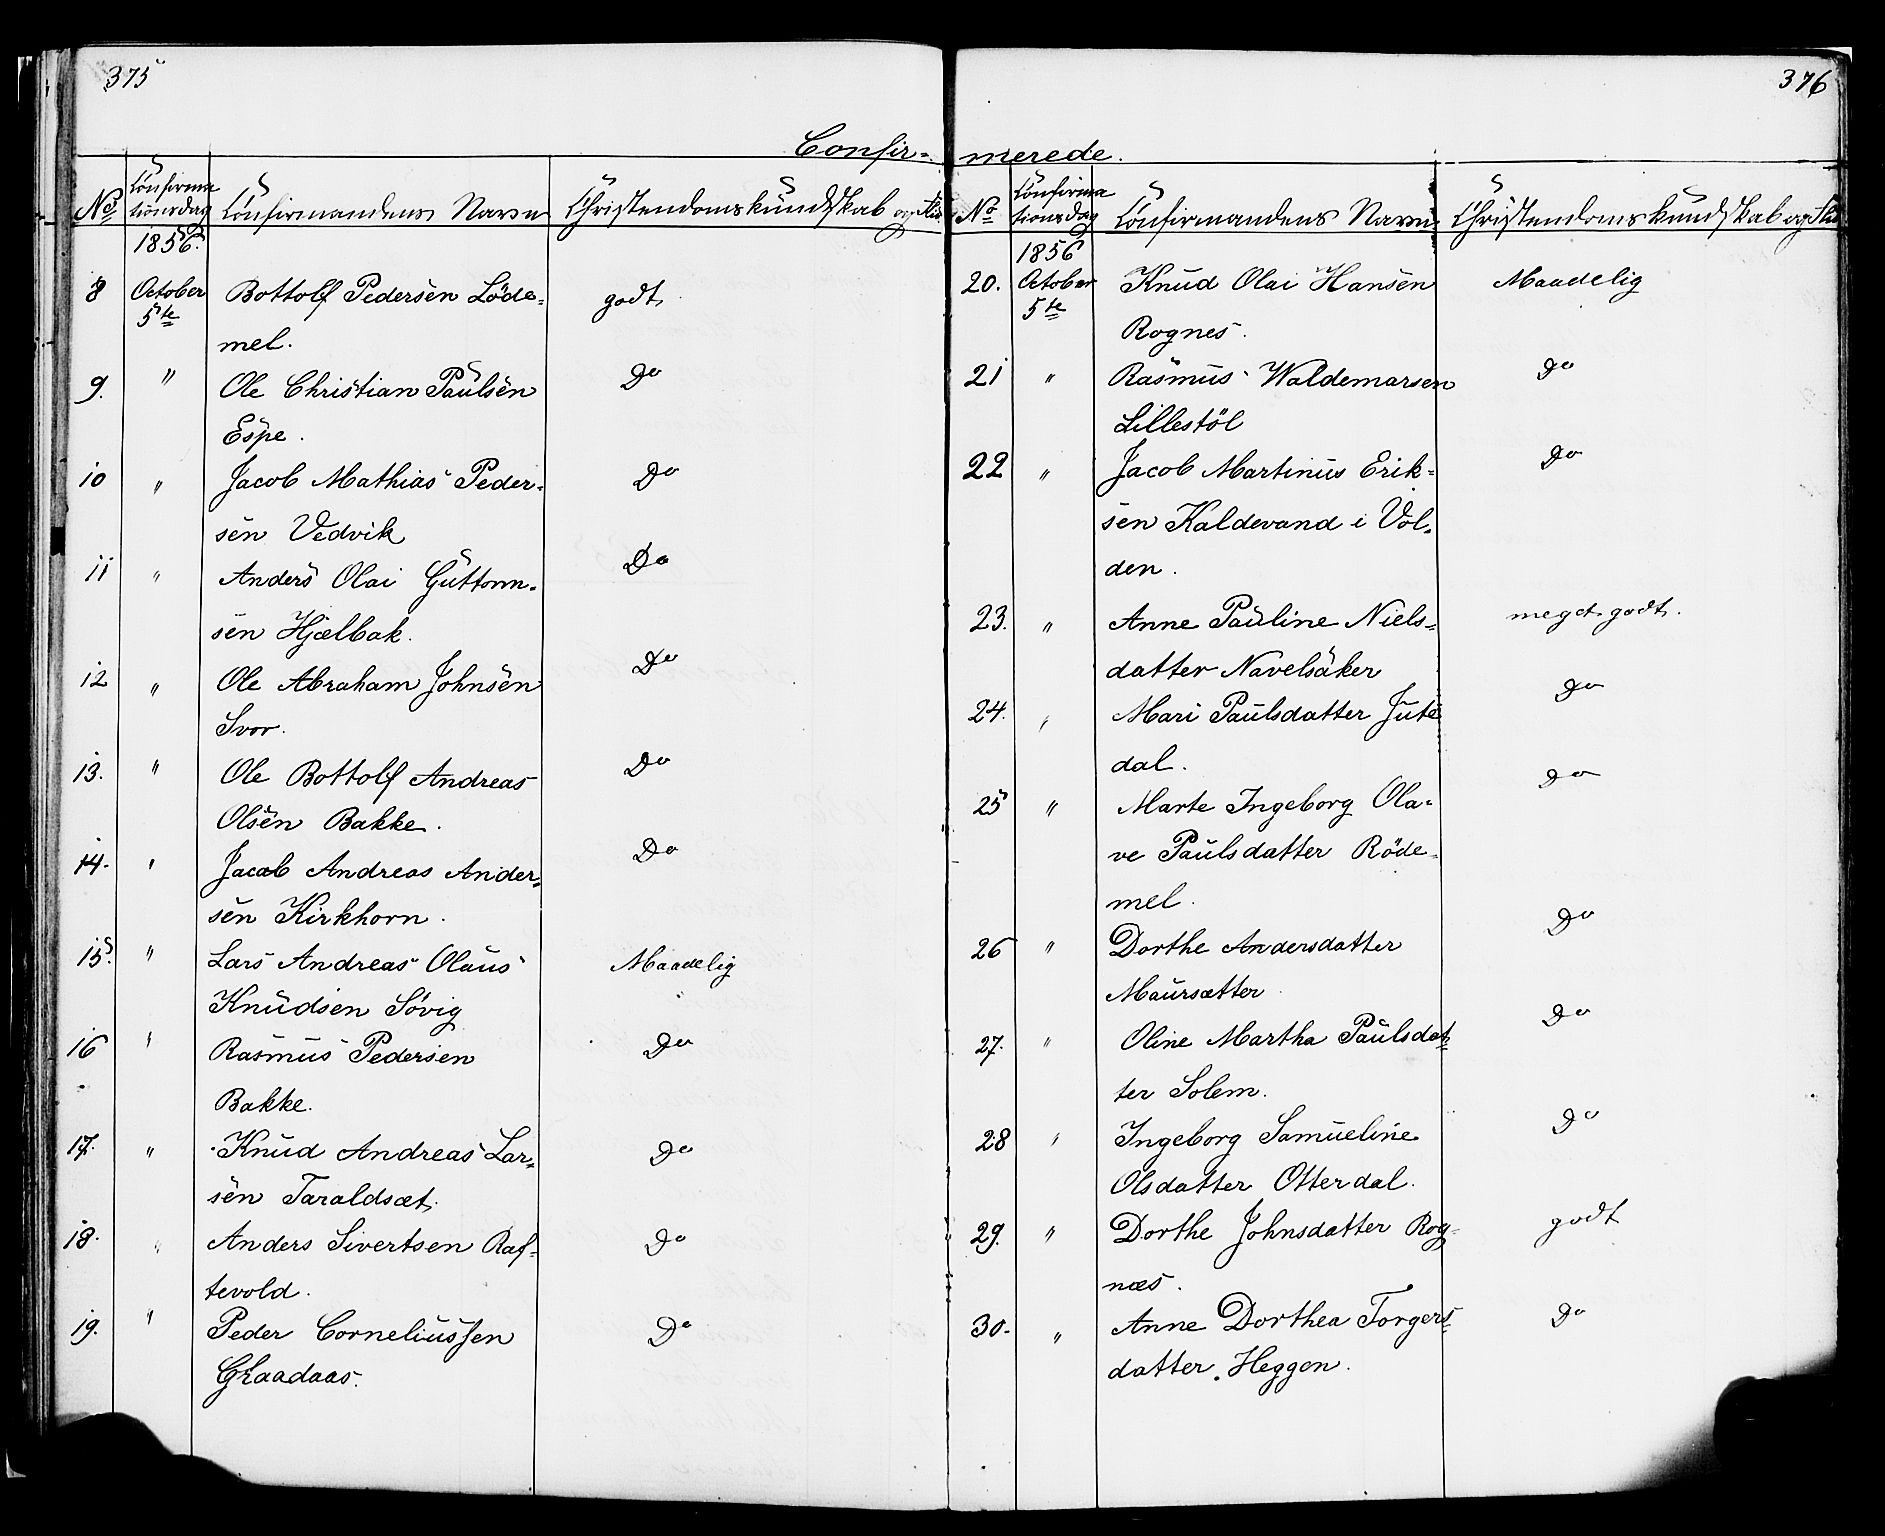 375
Confir-
No Confirma tionsdag Confirmandens Navn Christendomskundskab og Flid
1856.
8 October 5te Bottolf Pedersen Löde-
mel. godt
9. " Ole Christian Paulsen Do
Espe.
10 " Jacob Mathias Peder- Do
sen Vedvik
11 " Anders Olai Guttorm- Do
sen Hjælbak.
12 " Ole Abraham Johnsen Do
Svor.
13. " Ole Bottolf Andreas Do
Olsen Bakke.
14. " Jacob Andreas Ander- Do
sen Kirkhorn.
15. " Lars Andreas Olaus Maadelig
Knudsen Sövig
16 " Rasmus Pedersen Do
Bakke.
17. " Knud Andreas Lar- Do
sen Taraldsæt.
18. " Anders Sivertsen Raf- Do
tevold.
19. " Peder Corneliussen Do
Graadaas.
376
merede.
No Confirma tionsdag Confirmandens Navn Christendomskundskab og Flid
1856
20. October 5te Knud Olai Hansen Maadelig
Rognes.
21 " Rasmus Waldemarsen Do
Lillestöl
22 " Jacob Martinus Erik- Do
sen Kaldevand i Vol-
den.
23. " Anne Pauline Niels- meget godt.
datter Navelsaker
24. " Mari Paulsdatter Jute Do
dal.
25 " Marte Ingeborg Ola- Do
ve Paulsdatter Röde-
mel.
26 " Dorthe Andersdatter Do
Maursætter
27. " Oline Martha Paulsdat- Do
ter Solem.
28 " Ingeborg Samueline Do
Olsdatter Otterdal.
29. " Dorthe Johnsdatter Rog- godt
næs.
30. " Anne Dorthea Torgers- Do
datter Heggen.